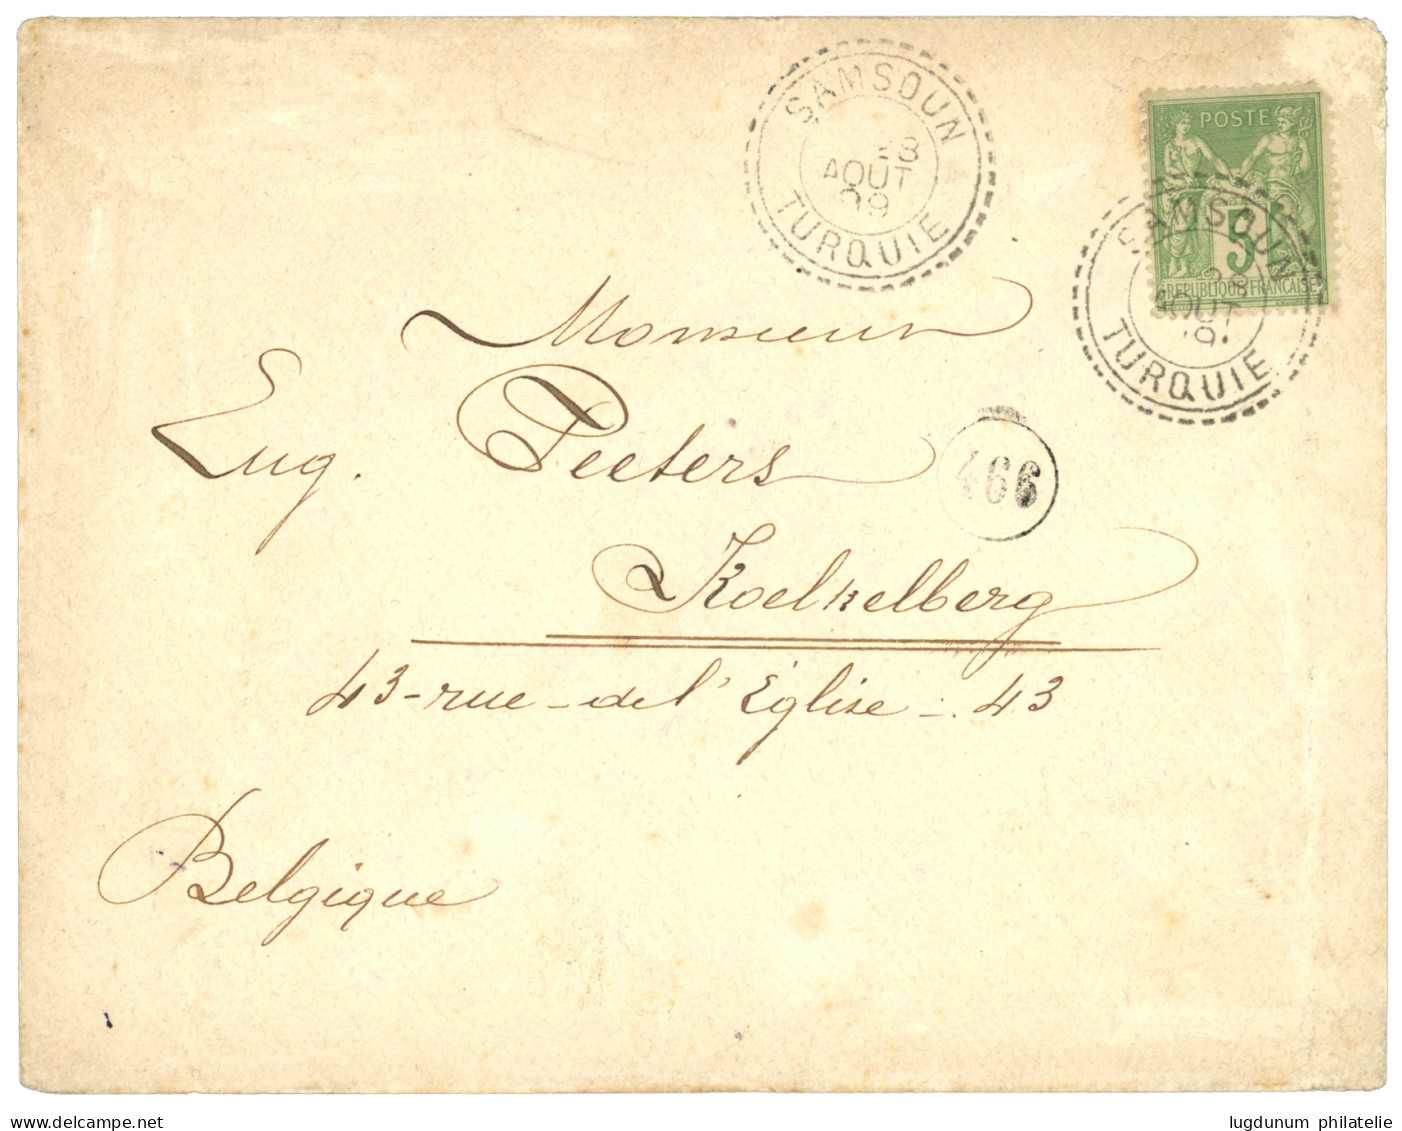 SAMSOUN
28
AOUT
09
TURQUIE
POSTE
5
REPUBLIQUE FRANCAISE
SAMSOUN
28
AOUT
TURQUIE
Monsieur
Eug. Peeters
466
Koekelberg
43-rue-de l'Église-.43
Belgique
delcampe.net
lugdunum philatelie